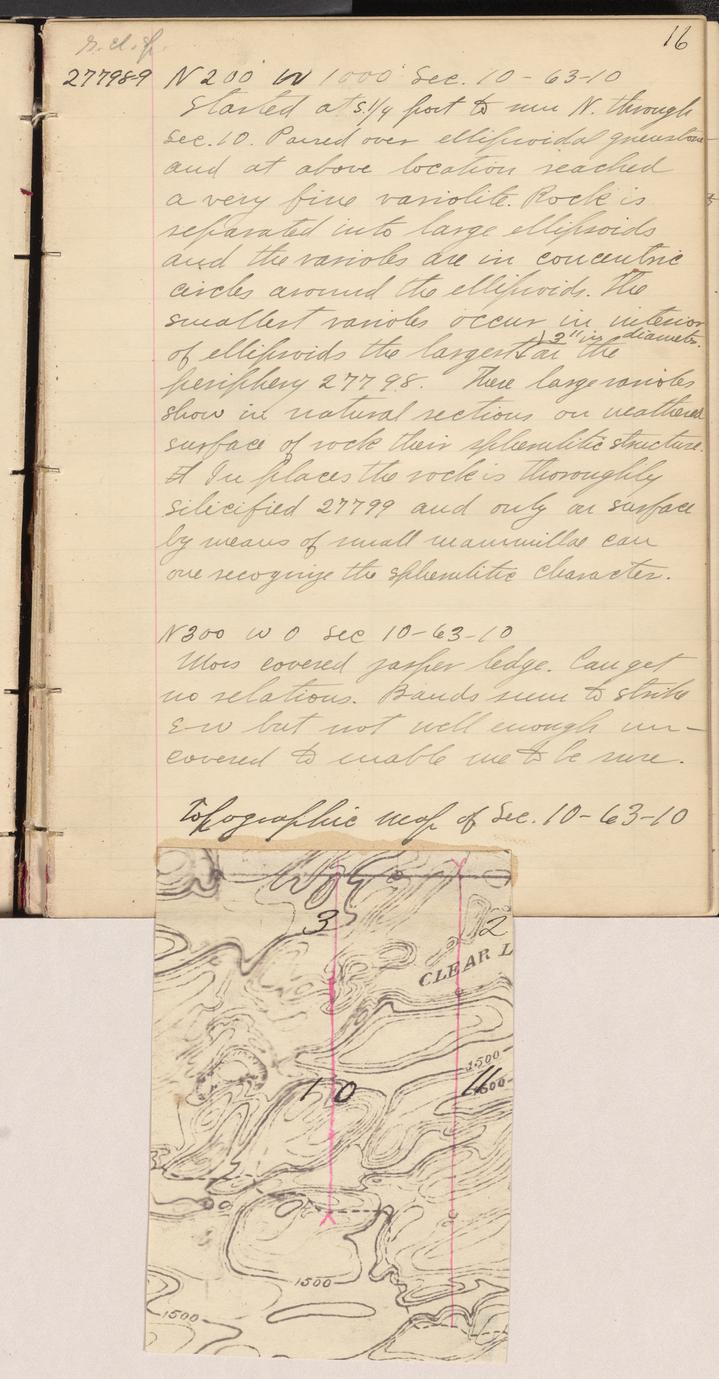 16
27798-9 N 200 W 1000 Sec. 10-63-10
Started at S.1/4 post to run N. through
Sec. 10. Passed over ellipsoidal greenstone
and at above location reached
a very fine variolite. Rock is
separated into large ellipsoids
and the varioles are in concentric
circles around the ellipsoids. The
smallest varioles occur in interior
) 3" in diameter
of ellipsoids the largest at the
periphery 27798. These large varioles
show in natural sections on weathered
surface of rock their spherulitic structure.
In places the rock is thoroughly
silicified 27799 and only on surface
by means of small mammillae can
one recognize the spherulitic character.
N300 W 0 Sec 10-63-10
Moss covered jasper ledge. Can get
no relations. Bands seem to strike
E-W but not well enough un-
covered to enable me to be sure.
Topographic map of Sec. 10-63-10
3
2
CLEAR L
1500
10
11
1500
1500
1500